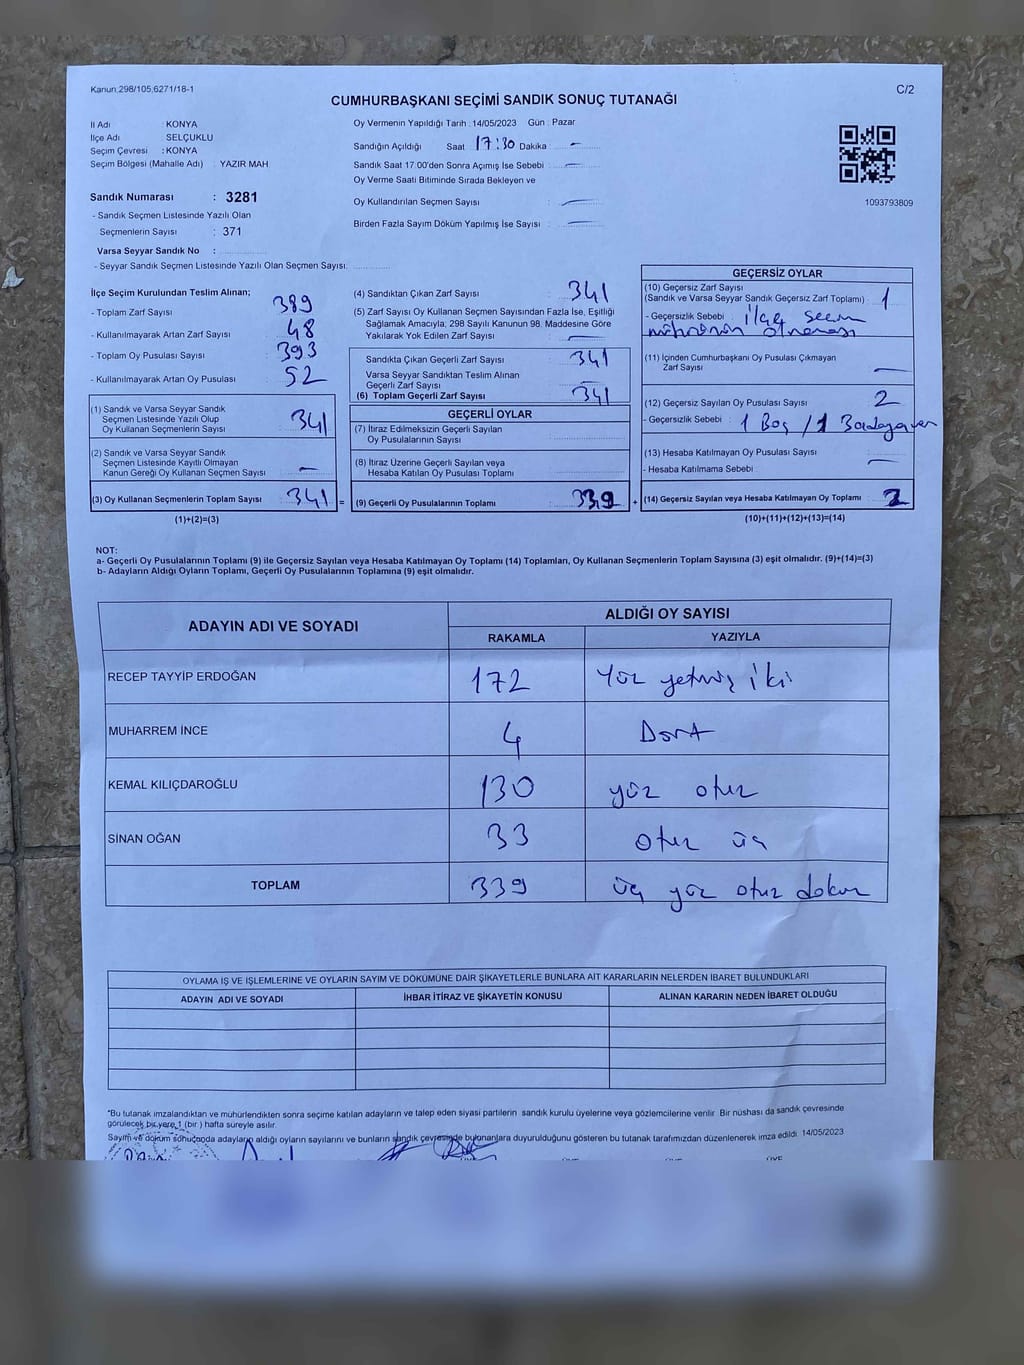 Kanun 298/105,6271/18-1
C/2
CUMHURBAŞKANI SEÇİMİ SANDIK SONUÇ TUTANAĞI
İl Adı : KONYA
İlçe Adı : SELÇUKLU
Seçim Çevresi : KONYA
Seçim Bölgesi (Mahalle Adı) : YAZIR MAH
Sandık Numarası : 3281
- Sandık Seçmen Listesinde Yazılı Olan
Seçmenlerin Sayısı : 371
Varsa Seyyar Sandık No :
- Seyyar Sandık Seçmen Listesinde Yazılı Olan Seçmen Sayısı:
Oy Vermenin Yapıldığı Tarih : 14/05/2023 Gün : Pazar
Sandığın Açıldığı Saat 17:30 Dakika : —
Sandık Saat 17.00'den Sonra Açımış İse Sebebi : —
Oy Verme Saati Bitiminde Sırada Bekleyen ve
Oy Kullandırılan Seçmen Sayısı : —
Birden Fazla Sayım Döküm Yapılmış İse Sayısı : —
1093793809
İlçe Seçim Kurulundan Teslim Alınan;
- Toplam Zarf Sayısı : 389
- Kullanılmayarak Artan Zarf Sayısı : 48
- Toplam Oy Pusulası Sayısı : 393
- Kullanılmayarak Artan Oy Pusulası : 52
(1) Sandık ve Varsa Seyyar Sandık
Seçmen Listesinde Yazılı Olup
Oy Kullanan Seçmenlerin Sayısı : 341
(2) Sandık ve Varsa Seyyar Sandık
Seçmen Listesinde Kayıtlı Olmayan
Kanun Gereği Oy Kullanan Seçmen Sayısı : —
(3) Oy Kullanan Seçmenlerin Toplam Sayısı : 341 =
(1)+(2)=(3)
(4) Sandıktan Çıkan Zarf Sayısı : 341
(5) Zarf Sayısı Oy Kullanan Seçmen Sayısından Fazla İse, Eşitliği
Sağlamak Amacıyla; 298 Sayılı Kanunun 98. Maddesine Göre
Yakılarak Yok Edilen Zarf Sayısı : —
Sandıkta Çıkan Geçerli Zarf Sayısı : 341
Varsa Seyyar Sandıktan Teslim Alınan
Geçerli Zarf Sayısı : —
(6) Toplam Geçerli Zarf Sayısı : 341
GEÇERLİ OYLAR
(7) İtiraz Edilmeksizin Geçerli Sayılan
Oy Pusulalarının Sayısı :
(8) İtiraz Üzerine Geçerli Sayılan veya
Hesaba Katılan Oy Pusulası Toplamı :
(9) Geçerli Oy Pusulalarının Toplamı : 339 +
GEÇERSİZ OYLAR
(10) Geçersiz Zarf Sayısı
(Sandık ve Varsa Seyyar Sandık Geçersiz Zarf Toplamı) : 1
- Geçersizlik Sebebi : ilçe seçim
mührünün olmaması
(11) İçinden Cumhurbaşkanı Oy Pusulası Çıkmayan
Zarf Sayısı : —
(12) Geçersiz Sayılan Oy Pusulası Sayısı : 2
- Geçersizlik Sebebi : 1 Boş / 1
(13) Hesaba Katılmayan Oy Pusulası Sayısı : —
- Hesaba Katılmama Sebebi :
(14) Geçersiz Sayılan veya Hesaba Katılmayan Oy Toplamı : 2
(10)+(11)+(12)+(13)=(14)
NOT:
a- Geçerli Oy Pusulalarının Toplamı (9) ile Geçersiz Sayılan veya Hesaba Katılmayan Oy Toplamı (14) Toplamları, Oy Kullanan Seçmenlerin Toplam Sayısına (3) eşit olmalıdır. (9)+(14)=(3)
b- Adayların Aldığı Oyların Toplamı, Geçerli Oy Pusulalarının Toplamına (9) eşit olmalıdır.
ADAYIN ADI VE SOYADI
ALDIĞI OY SAYISI
RAKAMLA YAZIYLA
RECEP TAYYİP ERDOĞAN 172 Yüz yetmiş iki
MUHARREM İNCE 4 Dört
KEMAL KILIÇDAROĞLU 130 yüz otuz
SİNAN OĞAN 33 otuz üç
TOPLAM 339 üç yüz otuz dokuz
OYLAMA İŞ VE İŞLEMLERİNE VE OYLARIN SAYIM VE DÖKÜMÜNE DAİR ŞİKAYETLERLE BUNLARA AİT KARARLARIN NELERDEN İBARET BULUNDUKLARI
ADAYIN ADI VE SOYADI İHBAR İTİRAZ VE ŞİKAYETİN KONUSU ALINAN KARARIN NEDEN İBARET OLDUĞU
"Bu tutanak imzalandıktan ve mühürlendikten sonra seçime katılan adayların ve talep eden siyasi partilerin sandık kurulu üyelerine veya gözlemcilerine verilir. Bir nüshası da sandık çevresinde
görülecek bir yere 1 (bir ) hafta süreyle asılır.
Sayım ve döküm sonucunda adayların aldığı oyların sayılarını ve bunların sandık çevresinde bulunanlara duyurulduğunu gösteren bu tutanak tarafımızdan düzenlenerek imza edildi. 14/05/2023